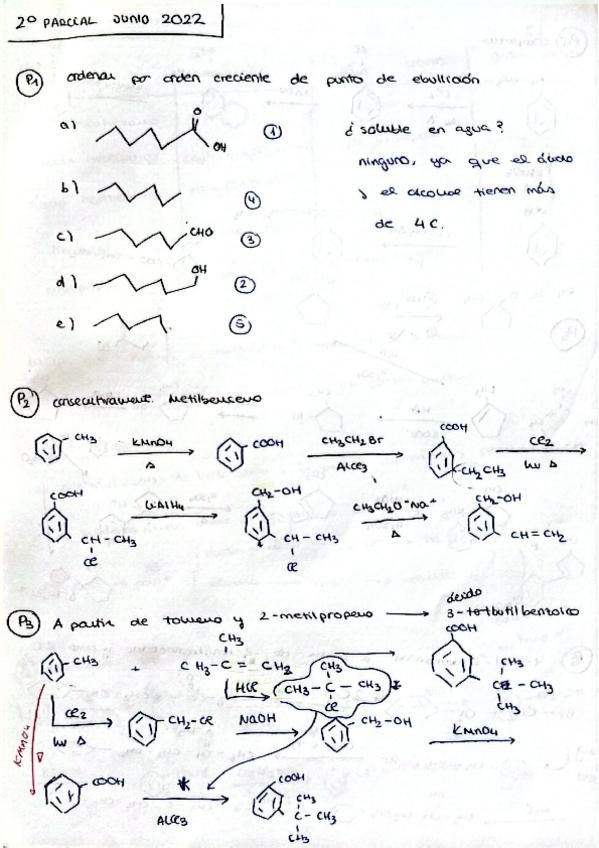 2º PARCIAL JUNIO 2022
P1 ordenar por orden creciente de punto de ebullición
a) O OH 1
¿soluble en agua?
ninguno, ya que el ácido
y el alcohol tienen más
de 4C.
b) 4
c) CHO 3
d) OH 2
e) 5
P2 consecutivament. Metilbenceno
CH3 KMnO4 Δ COOH CH3CH2Br AlCl3 COOH CH2CH3 Cl2 hν Δ
COOH CH-CH3 Cl LiAlH4 CH2-OH CH-CH3 Cl CH3CH2O⁻Na⁺ Δ CH2-OH CH=CH2
P3 A partir de tolueno y 2-metilpropeno → ácido 3-tertbutilbenzoico
CH3 + CH3-C=CH2 CH3 COOH CH3 C-CH3 CH3
HCl CH3 CH3-C-CH3 Cl *
KMnO4 Δ Cl2 hν Δ CH2-Cl NaOH CH2-OH KMnO4
COOH * AlCl3 COOH CH3 C-CH3 CH3